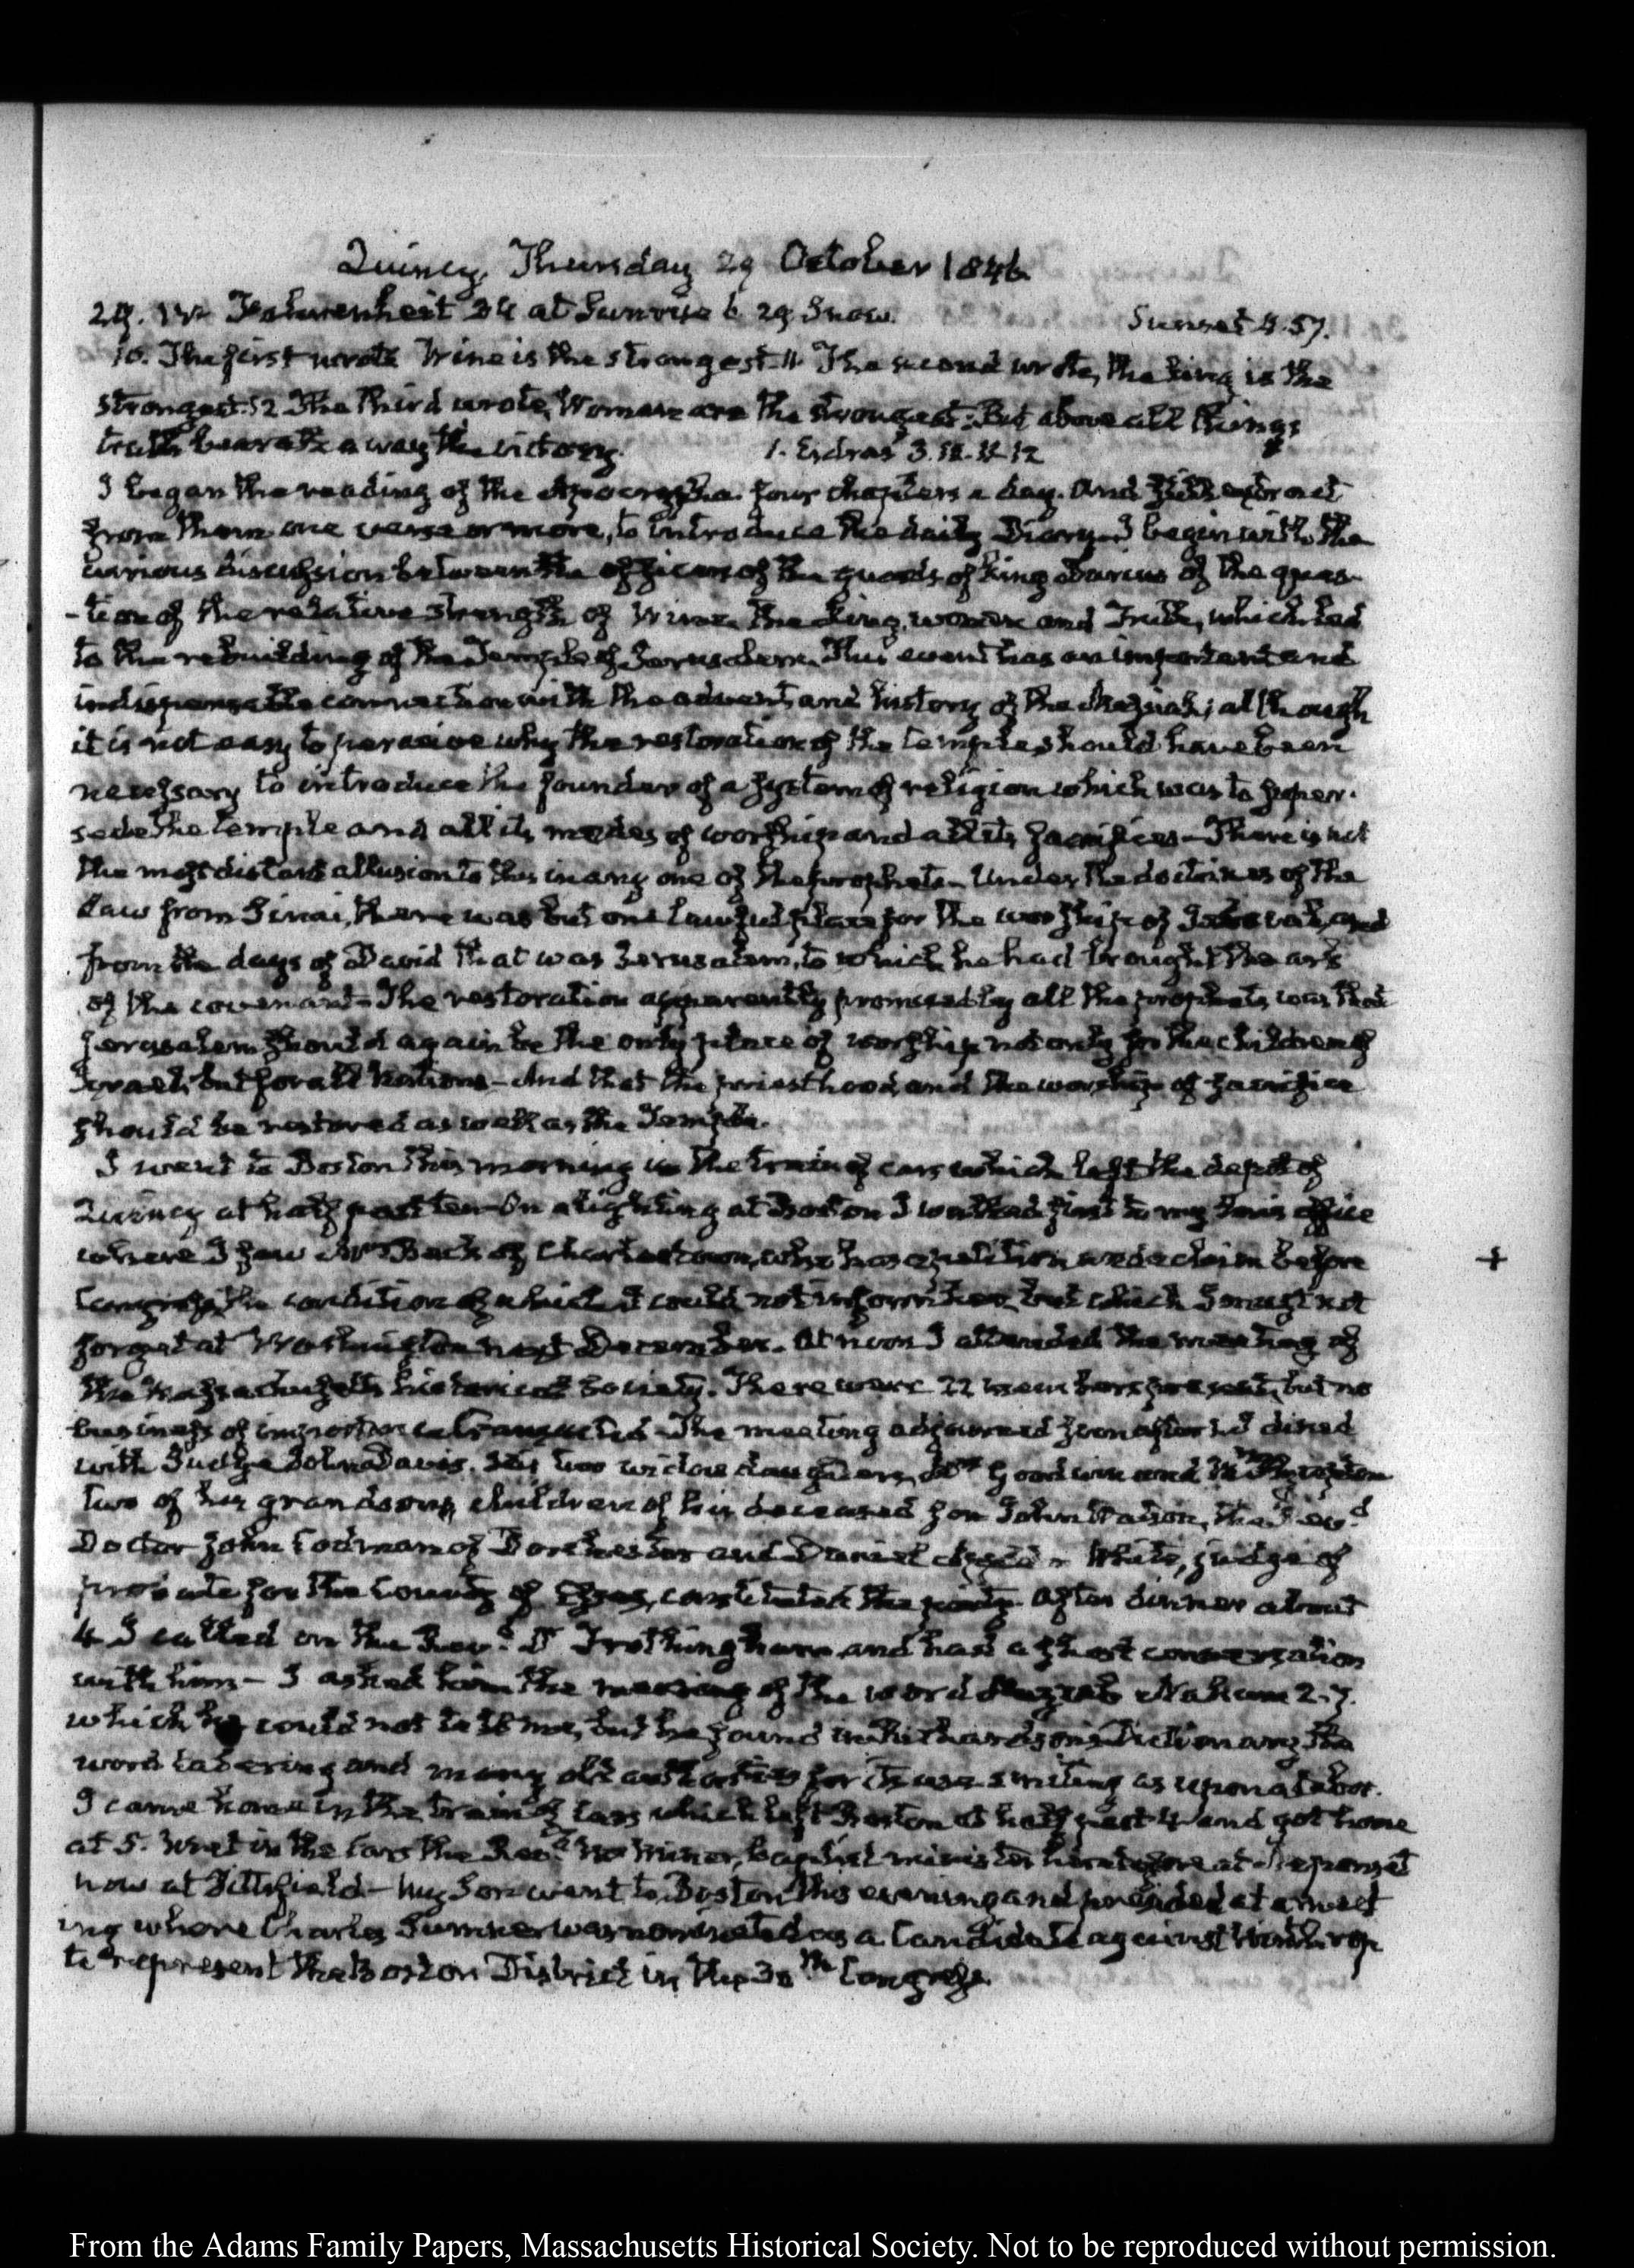 Quincy, Thursday 29 October 1846.
29. IV. Fahrenheit 34 at Sunrise 6. 29 Snow. Sunset 4.57.
10. The first wrote Wine is the strongest. 11 The second wrote, the king is the
strongest. 12 The third wrote, Women are the strongest: But above all things
truth beareth away the victory. 1. Esdras 3. 10. 11. 12
I began the reading of the Apocrypha four chapters a day. And extract
from them one verse or more, to introduce the daily Diary. I begin with the
curious discussion between the officers of the guards of king Darius of the ques-
-tion of the relative strength of Wine, the king, women and Truth, which led
to the rebuilding of the Temple of Jerusalem. This event has an important and
indispensable connection with the advent and history of the Messiah; although
it is not easy to perceive why the restoration of the temple should have been
necessary to introduce the founder of a system of religion which was to super-
sede the temple and all its modes of worship and all its sacrifices - There is not
the most distant allusion to this in any one of the prophets - Under the doctrines of the
Law from Sinai, there was but one lawful place for the worship of Jehovah, and
from the days of David that was Jerusalem, to which he had brought the ark
of the covenant - The restoration apparently promised by all the prophets, was that
Jerusalem should again be the only place of worship not only for the children of
Israel, but for all Nations - And that the priesthood and the worship of sacrifice
should be restored as well as the Temple.
I went to Boston this morning in the train of cars which left the depot of
Quincy at half past ten - On alighting at Boston I walked first to my Son's office
where I saw Mr Back of Charlestown, who has a petition and a claim before
Congress, the condition of which I could not inform him, but which I must not
forget at Washington next December. At noon I attended the meeting of
the Massachusetts historical Society. There were 22 members present, but no
business of importance transacted - The meeting adjourned soon after 1. I dined
with Judge John Davis. His two widow daughters, Mrs Goodwin and
two of his grandsons, children of his deceased son John Watson, the Revd
Doctor John Codman of Dorchester and Daniel Appleton White, judge of
probate for the County of Essex, constituted the party. After dinner about
4 I called on the Revd Dr Frothingham and had a short conversation
with him - I asked him the meaning of the word Huzzab Nahum 2.7.
which he could not tell me, but he found in Richardson's Dictionary the
word tabering and many old authorities for its use smiting as upon a tabor.
I came home in the train of cars which left Boston at half past 4 and got home
at 5. Met in the Cars the Revd Mr baptist minister heretofore at Neponset
now at Pittsfield - My Son went to Boston this evening and presided at a meet
ing where Charles Sumner was nominated as a Candidate against Winthrop
to represent the Boston District in the 30th Congress.
+
From the Adams Family Papers, Massachusetts Historical Society. Not to be reproduced without permission.